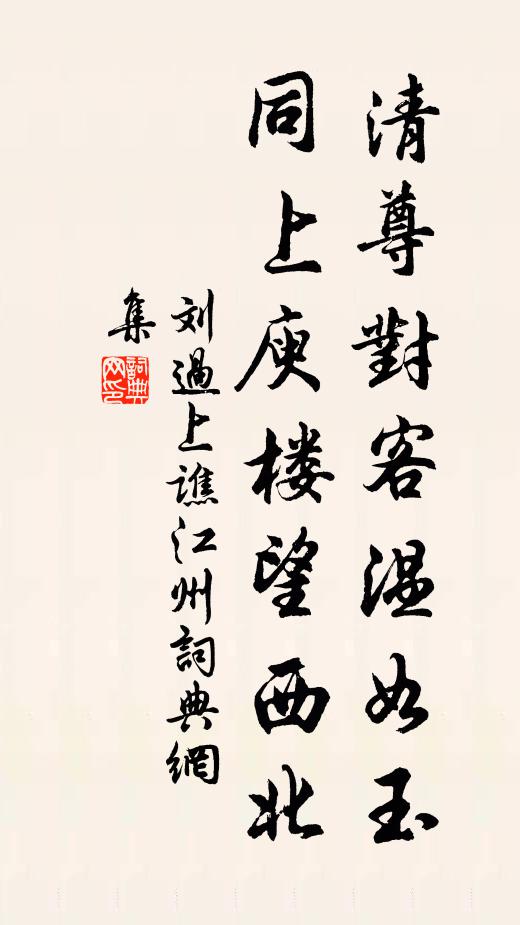 清尊對客温如玉
同上庾楼望西北
刘過上譙江州詞典網
集
詞典
网印